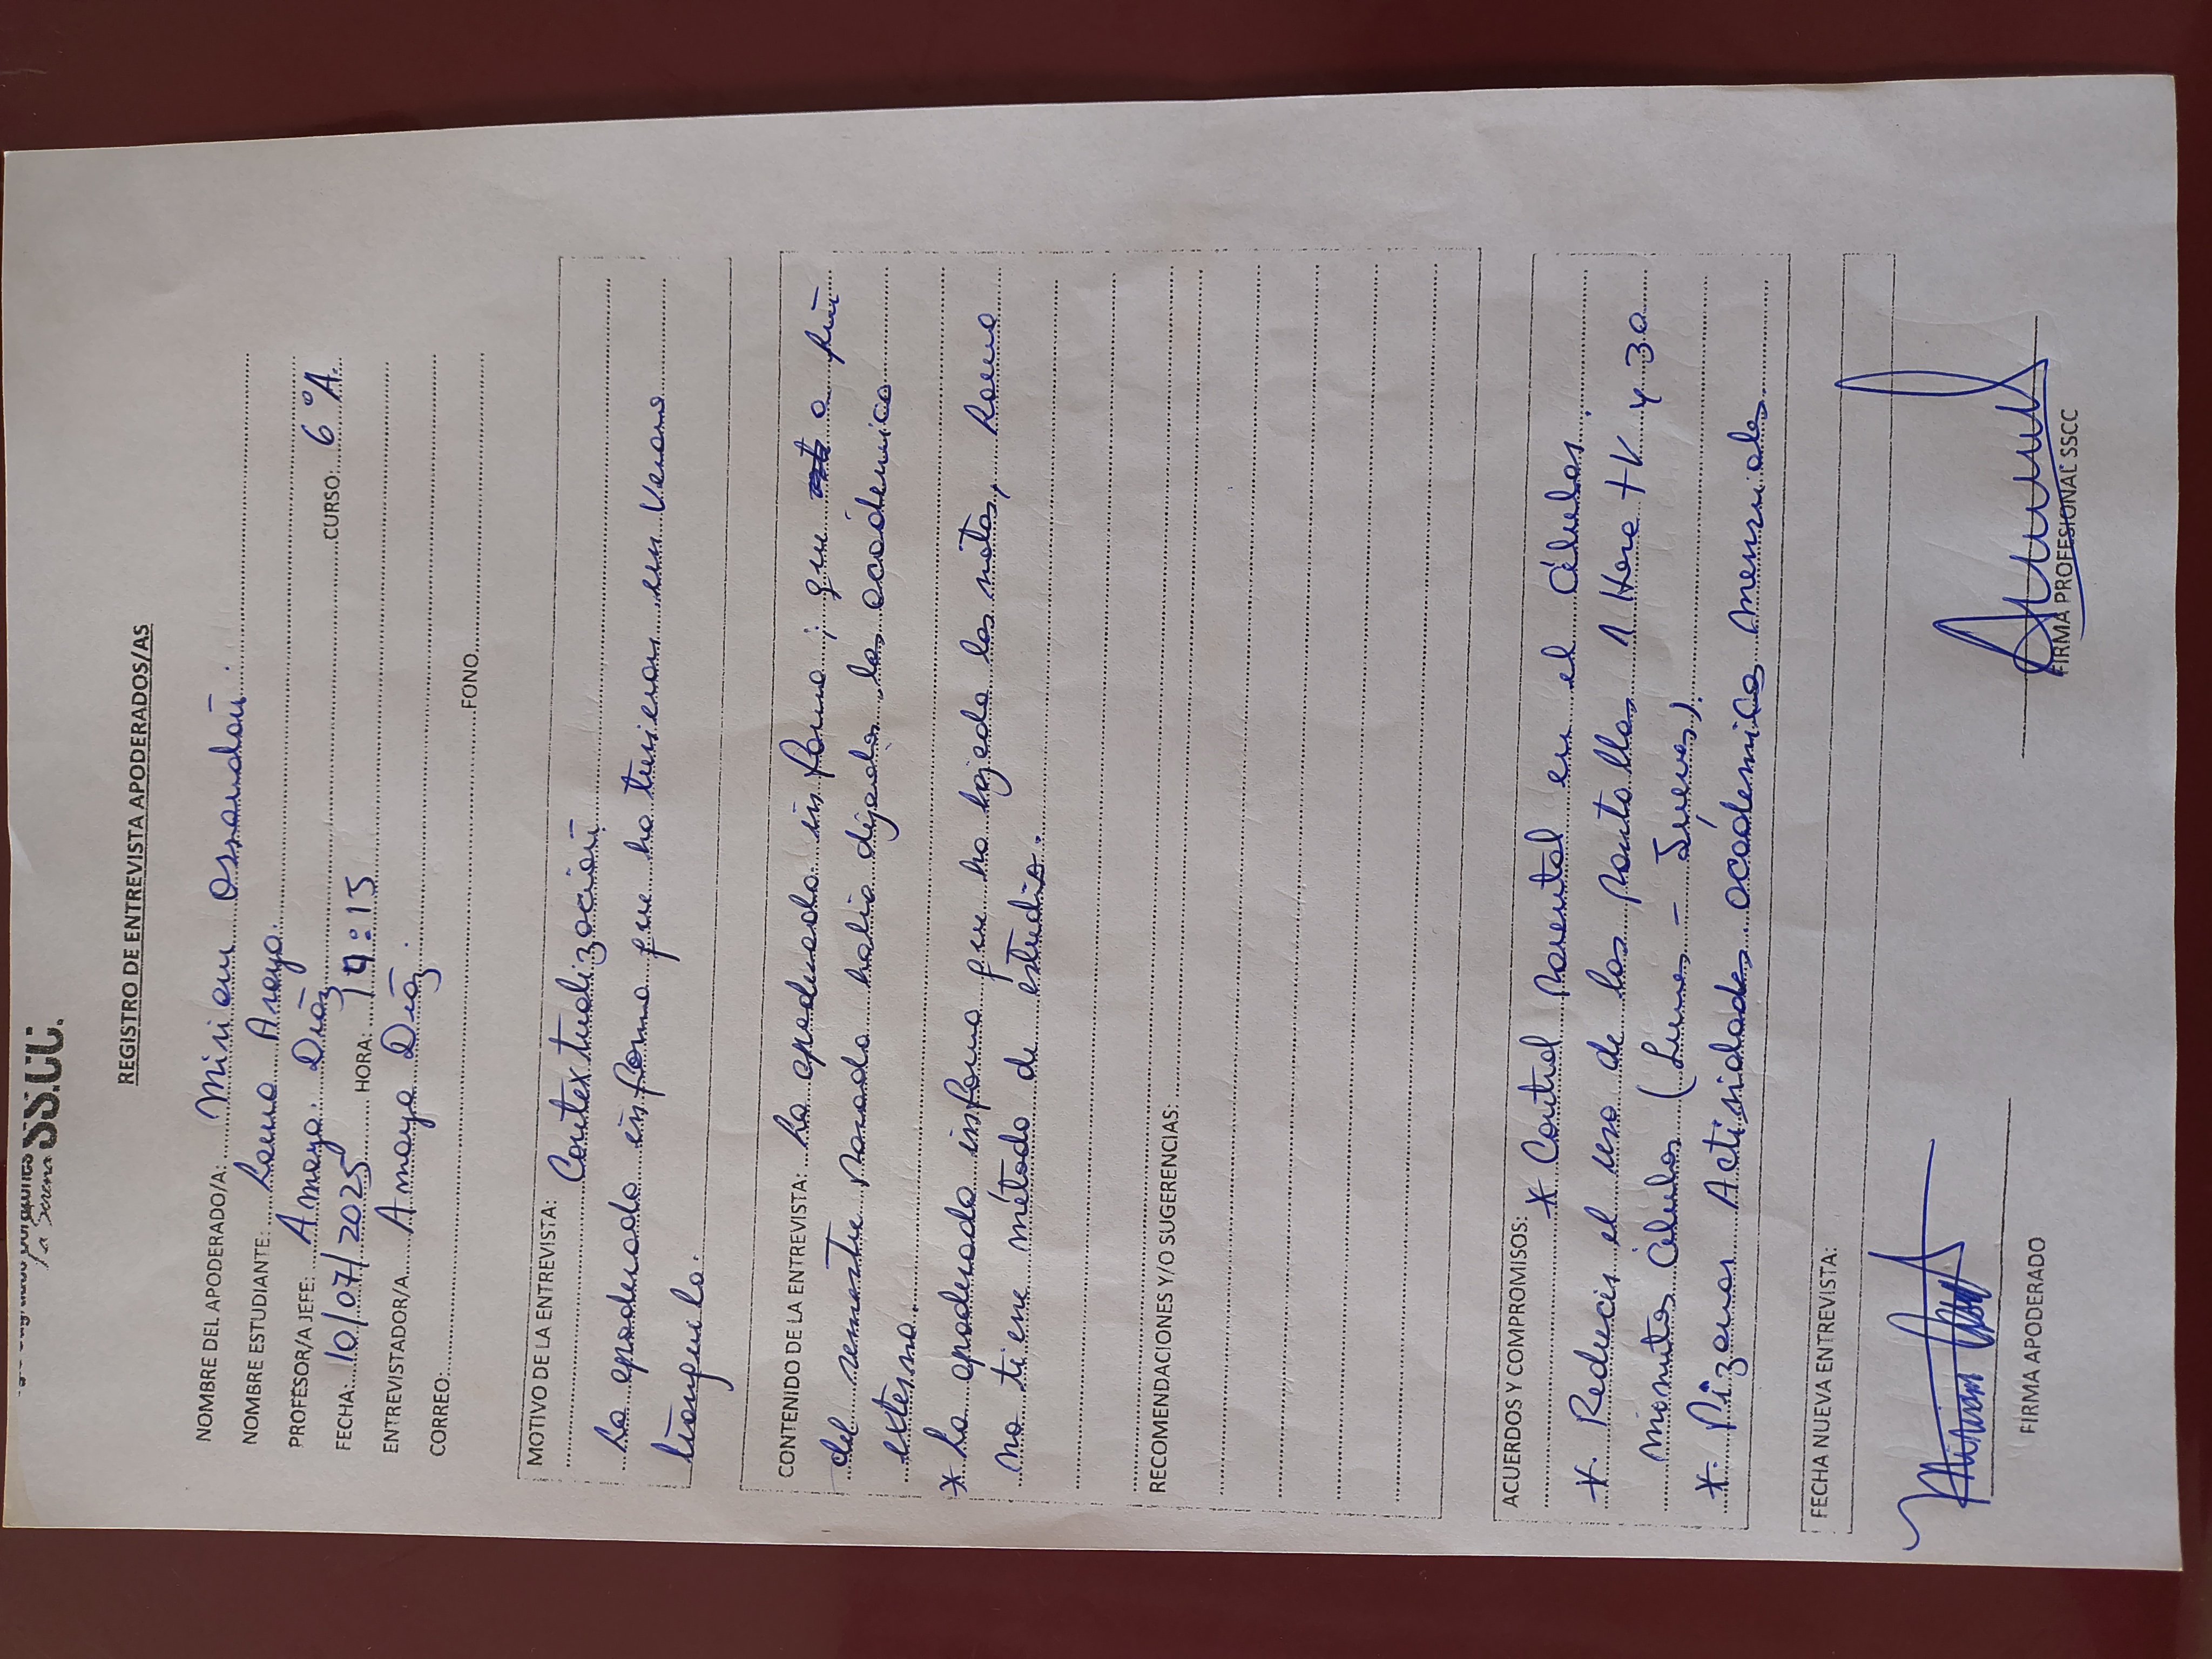 SS.CC.
La Serena
REGISTRO DE ENTREVISTA APODERADOS/AS
NOMBRE DEL APODERADO/A: Miriam Ossandón.
NOMBRE ESTUDIANTE: Laura Araya.
PROFESOR/A JEFE: Amaya Díaz CURSO: 6°A.
FECHA: 10/07/2025 HORA: 19:15
ENTREVISTADOR/A Amaya Díaz.
CORREO: FONO
MOTIVO DE LA ENTREVISTA: Contextualización
La apoderada informa que ha tenido un verano
tranquilo.
CONTENIDO DE LA ENTREVISTA: La apoderada informa; que a fin
del semestre pasado había dejado lo académico
externo.
* La apoderada informa que ha bajado las notas, Laura
no tiene método de estudio.
RECOMENDACIONES Y/O SUGERENCIAS:
ACUERDOS Y COMPROMISOS: * Control parental en el célular.
* Reducir el uso de las pantallas 1 Hora TV y 30
minutos célular (Lunes - Jueves).
* Pizarra Actividades académicas mensuales.
FECHA NUEVA ENTREVISTA:
FIRMA APODERADO
FIRMA PROFESIONAL SSCC